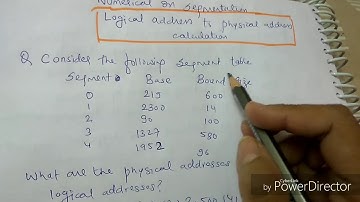 Numerical on Segmentation
Logical address to physical address
calculation
Q Consider the following segment table
Segment Base Bound
0 219 600
1 2300 14
2 90 100
3 1327 580
4 1952 96
What are the physical addresses
logical addresses?
by PowerDirector